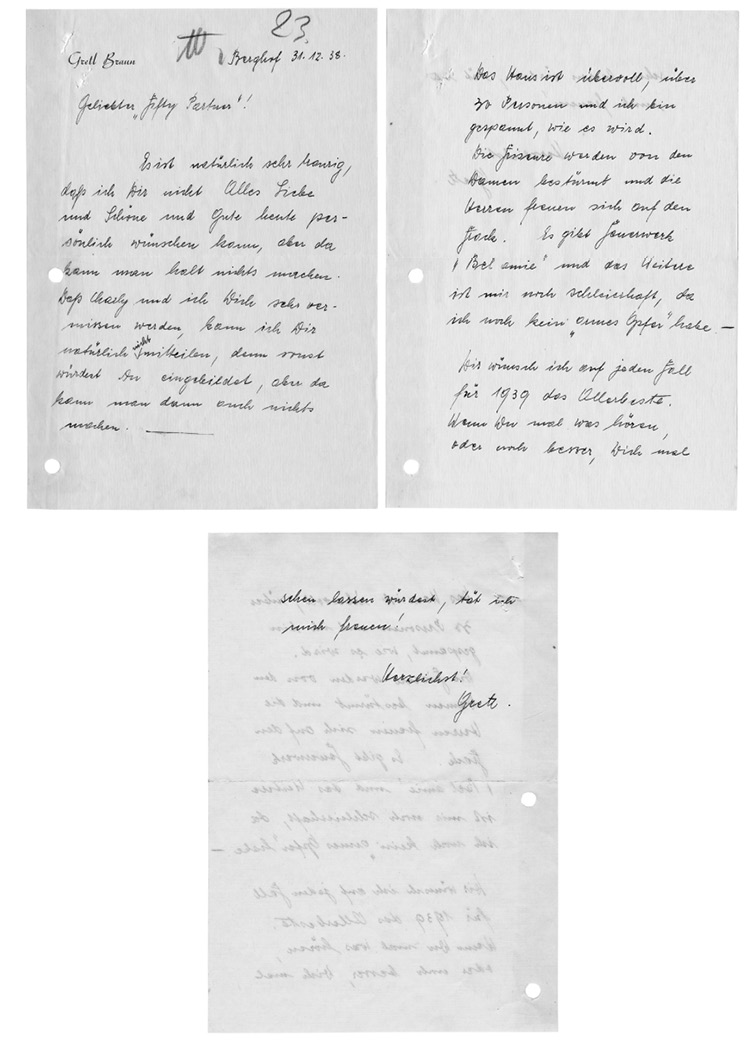 23.
Gretl Braun
Berghof 31.12.38.
Geliebter „Fifty Partner"!
Es ist natürlich sehr traurig,
daß ich Dir nicht Alles Liebe
und Schöne und Gute heute per-
sönlich wünschen kann, aber da
kann man halt nichts machen.
Daß Charly und ich Dich sehr ver-
missen werden, kann ich Dir
natürlich nicht mitteilen, denn sonst
würdest Du eingebildet, aber da
kann man dann auch nichts
machen.
Das Haus ist übervoll, über
30 Personen und ich bin
gespannt, wie es wird.
Die Friseure werden von den
Damen bestürmt und die
Herren freuen sich auf den
Frack. Es gibt Feuerwerk
„Bel amie" und das Weitere
ist mir noch schleierhaft, da
ich noch kein „armes Opfer" habe. —
Dir wünsch ich auf jeden Fall
für 1939 das Allerbeste.
Wenn Du mal was hören,
oder noch besser, Dich mal
sehen lassen würdest, tät ich
mich freuen!
Herzlichst!
Gretl.